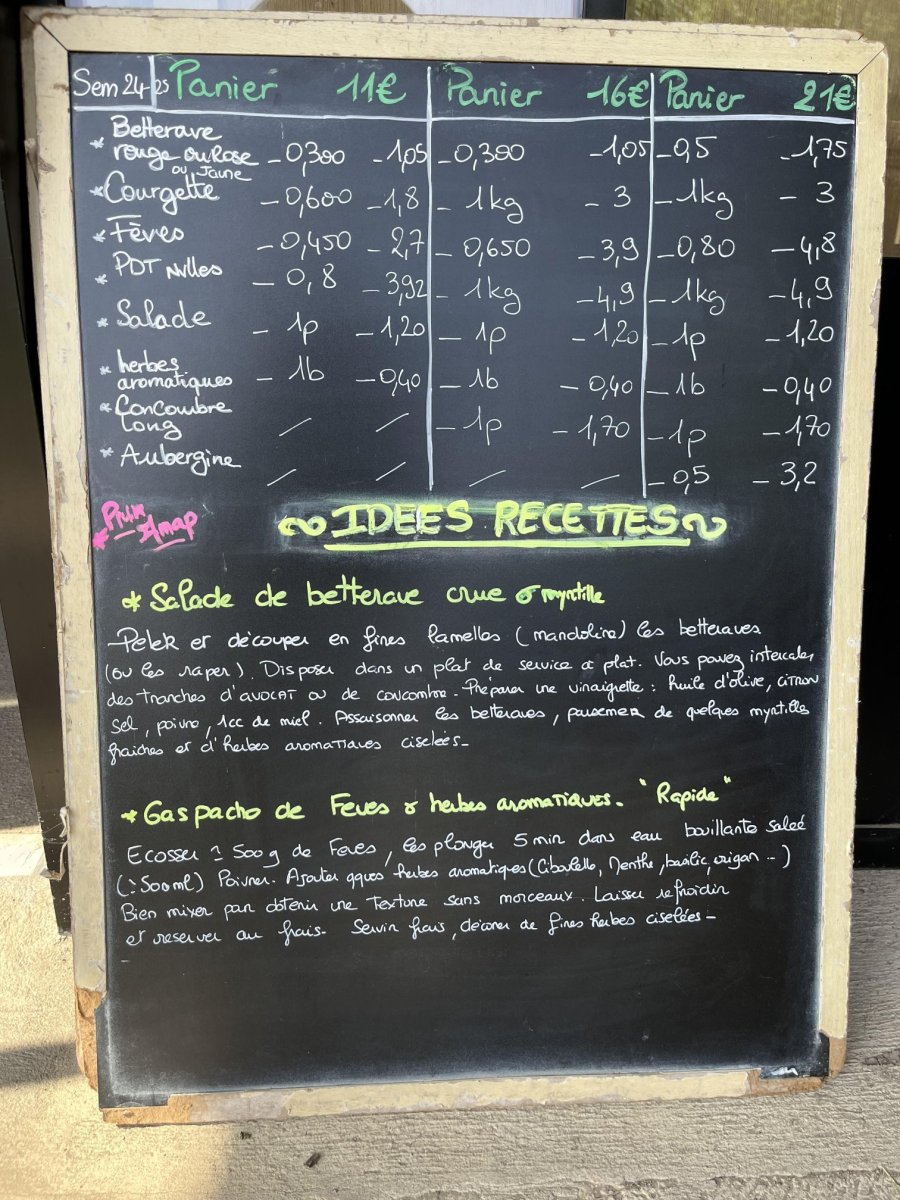 Sem 24-25 Panier 11€ Panier 16€ Panier 21€
* Betterave
rouge ou Rose - 0,300 - 1,05 - 0,300 - 1,05 - 0,5 - 1,75
ou Jaune
* Courgette - 0,600 - 1,8 - 1kg - 3 - 1kg - 3
* Fèves - 0,450 - 2,7 - 0,650 - 3,9 - 0,80 - 4,8
* PDT Nvlles - 0,8 - 3,92 - 1kg - 4,9 - 1kg - 4,9
* Salade - 1p - 1,20 - 1p - 1,20 - 1p - 1,20
* herbes
aromatiques - 1b - 0,40 - 1b - 0,40 - 1b - 0,40
* Concombre
long / / - 1p - 1,70 - 1p - 1,70
* Aubergine / / / / - 0,5 - 3,2
* Prix
Amap
~ IDEES RECETTES ~
* Salade de betterave crue & myrtille
- Peler et découper en fines lamelles (mandoline) les betteraves
(ou les raper). Disposer dans un plat de service à plat. Vous pouvez intercaler
des tranches d'avocat ou de concombre. Préparer une vinaigrette : huile d'olive, citron
sel, poivre, 1cc de miel. Assaisonner les betteraves, parsemer de quelques myrtilles
fraiches et d'herbes aromatiques ciselées -
* Gaspacho de Feves & herbes aromatiques. "Rapide"
Ecosser ± 500g de Feves, les plonger 5 min dans eau bouillante salée
(± 500ml) Poivrer. Ajouter qques herbes aromatiques (Ciboulette, Menthe, basilic, origan ...)
Bien mixer pour obtenir une texture sans morceaux. Laisser refroidir
et reserver au frais - Servir frais, décorer de fines herbes ciselées -